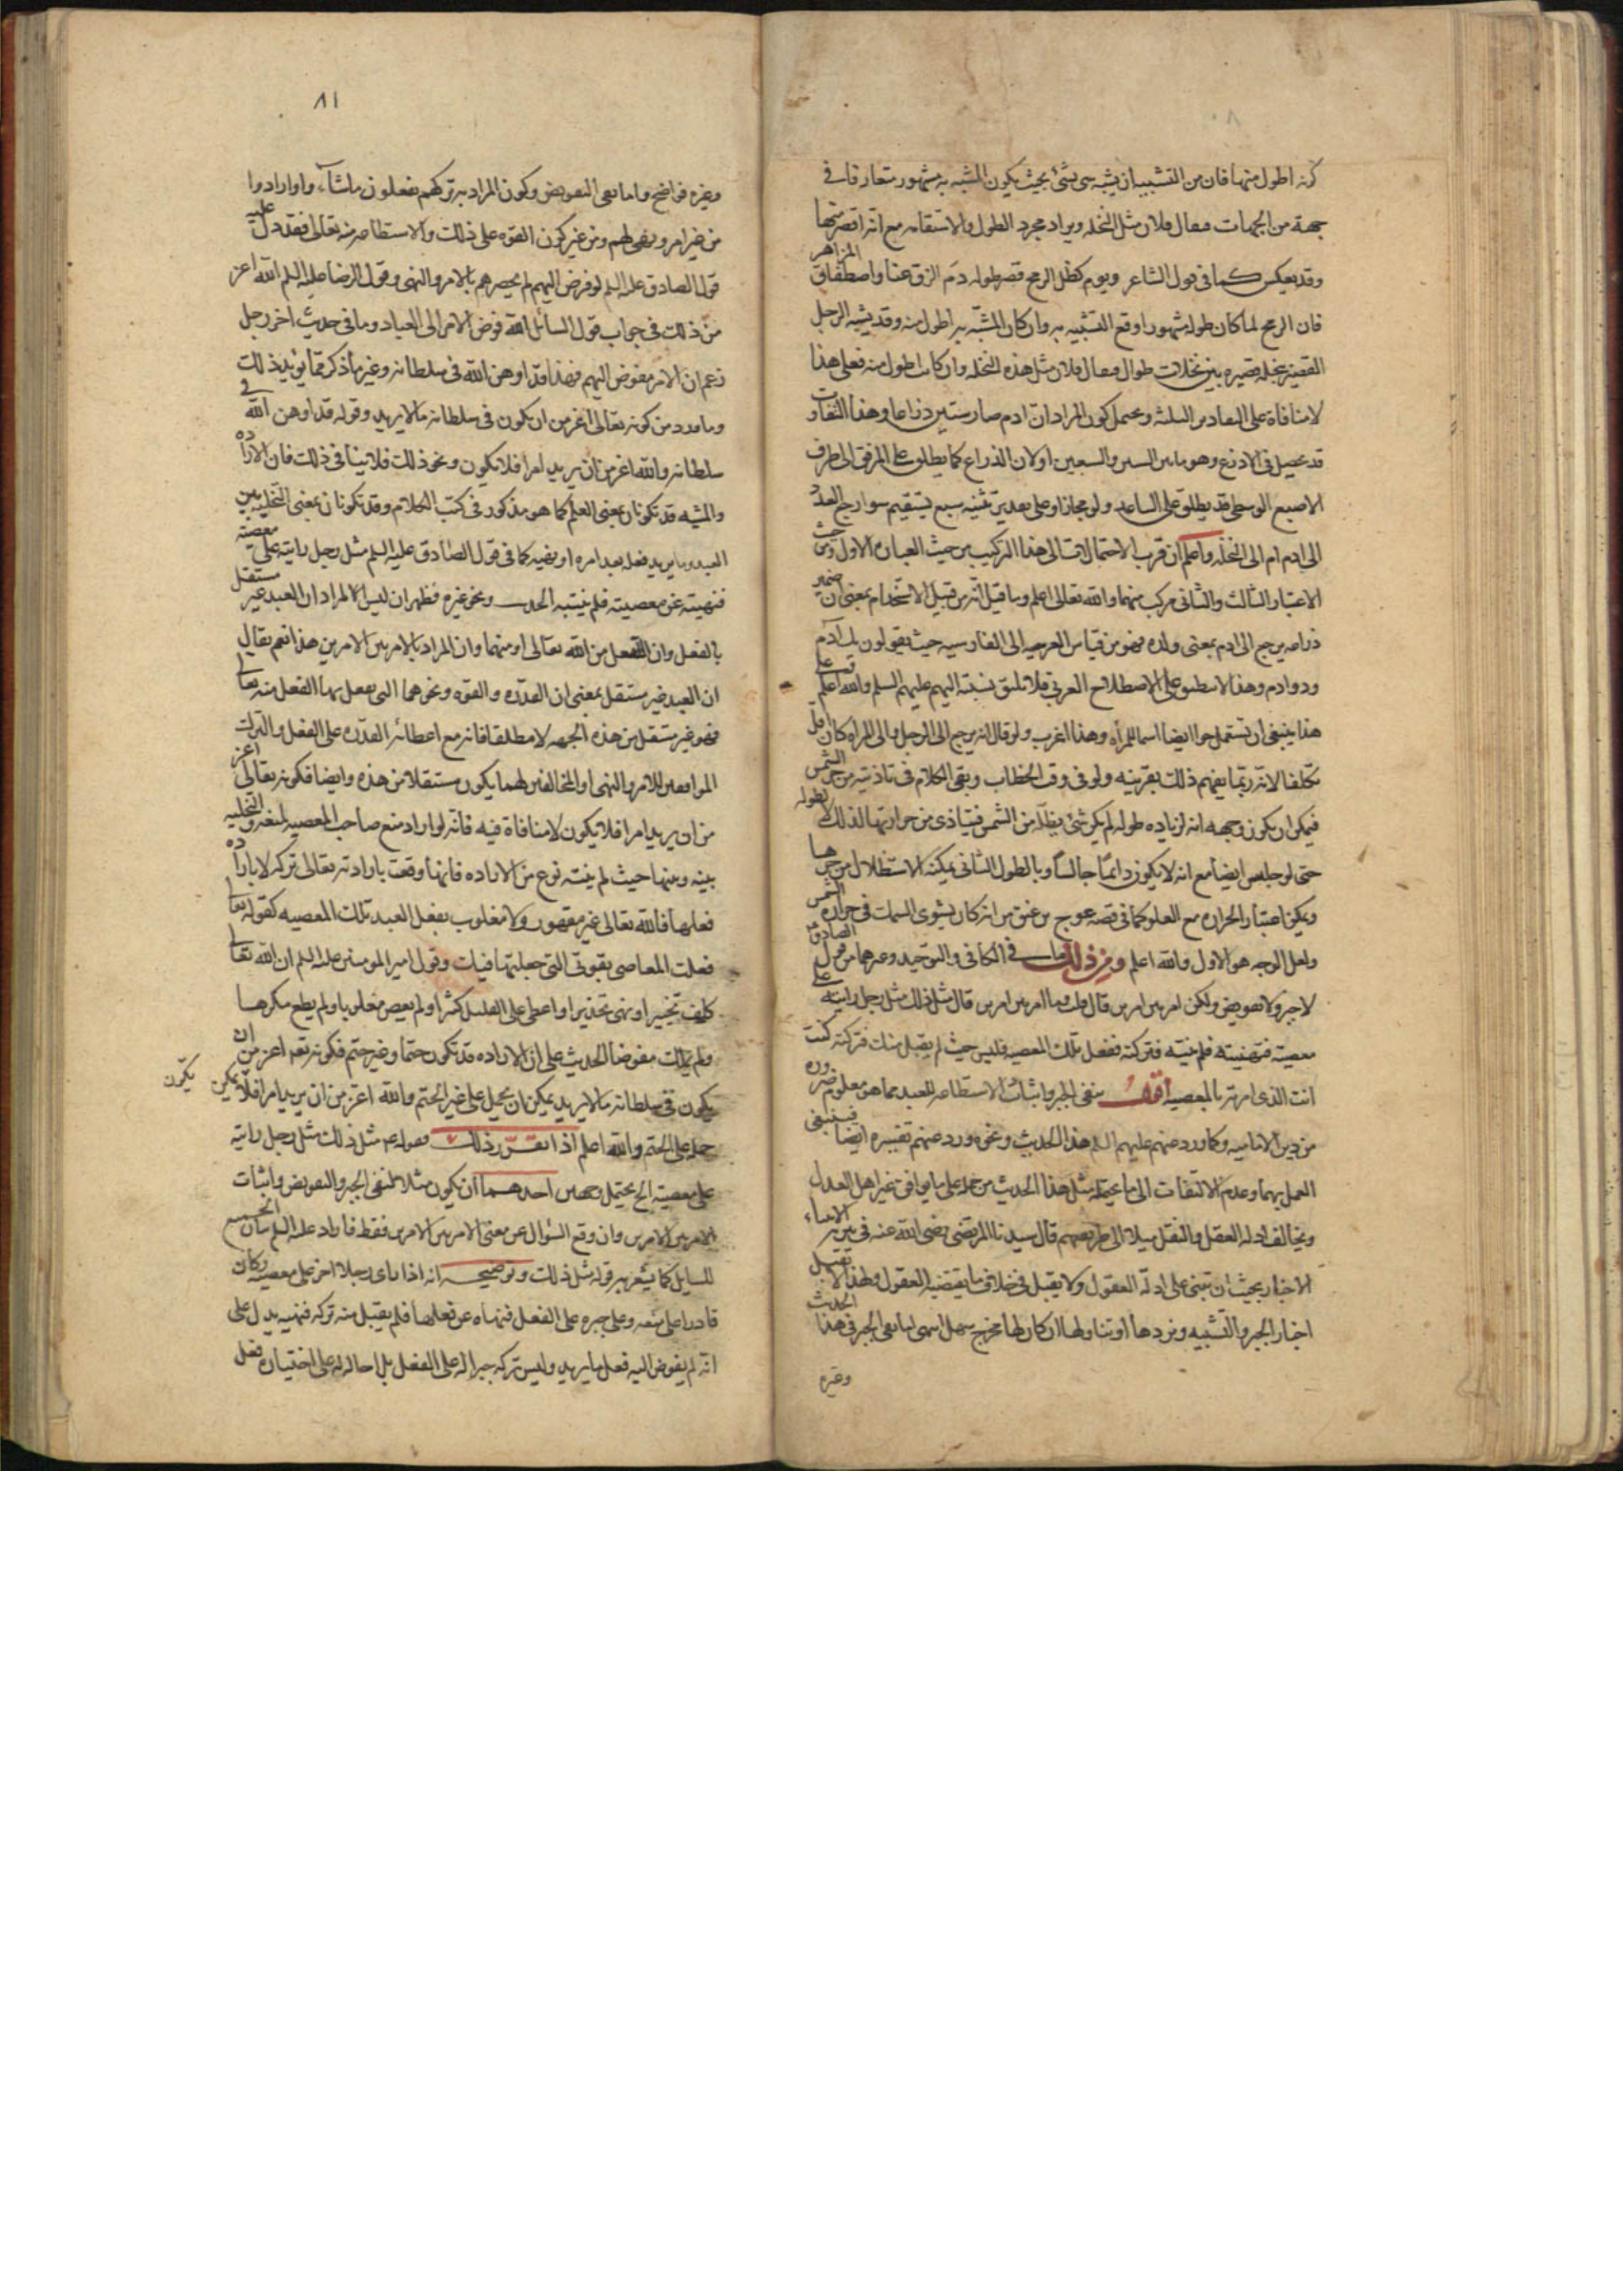 كونه اطول منها فان من التشبيه ان يشبه شئ بشئ بحيث يكون المشبه به مشهور متعارفا في
جهة من الجهات فيقال فلان مثل النخله ويراد مجرد الطول والاستقامه مع انه اقصر منها
وقد يعكس كما في قول الشاعر ويوم كظل الرمح قصر طوله دم الزق عنا واصطفاق المزاهر
فان الرمح لما كان طوله مشهورا وقع التشبيه به وان كان المشبه به اطول منه وقد يشبه الرجل
القصير بنخله قصيره بين نخلات طوال فيقال فلان مثل هذه النخله وان كانت اطول منه فعلى هذا
لا منافاة على التقادير الثلثة ويحتمل كون المراد ان ادم صار ستين ذراعا وهذا التفاوت
قد يحصل في الاذرع وهو ما بين الستين والسبعين اولان الذراع كما يطلق على المرفق الى طرف
الاصبع الوسطى قد يطلق على الساعد ولو مجازا وعلى تقدير تثنيه سبع يستقيم سوا رجع العدد
الى ادم ام الى النخله واعلم ان قرب الاحتمالات الى هذا التركيب من حيث العباره الاول ومن حيث
الاعتبار الثالث والثاني مركب منهما والله تعالى اعلم وما قيل انه من قبيل الاستخدام بمعنى ان ضمير
ذراعه يرجع الى ادم بمعنى ولده فهو من قياس العربيه الى الفارسيه حيث يقولون يك آدم
ودو ادم وهذا لا ينطبق على الاصطلاح العربي فلا تليق نسبته اليهم عليهم السلم والله اعلم
هذا ينبغي ان تستعمل حوا ايضا اسما للمرأه وهذا اغرب ولو قال انه يرجع الى الرجل والى المراه كان اقل
تكلفا لانه ربما يفهم ذلك بقرينه ولو في وقت الخطاب وبقى الكلام في تاذيه من حر الشمس
فيمكن ان يكون وجهه انه لزياده طوله لم يكن شئ يظله من الشمس فيتاذى من حرارتها لذلك لا بطوله
حتى لو جلس ايضا مع انه لا يكون دائما جالسا وبالطول الثاني يمكنه الاستظلال من حرها
ويمكن اعتبار الحراره مع العلو كما في قصه عوج بن عنق من انه كان يشوى السمك في حراره الشمس
ولعل الوجه هو الاول والله اعلم ومن ذلك ما في الكافي والتوحيد وغيرهما من قول الصادق
لا جبر ولا تفويض ولكن امر بين امرين قال قلت وما امر بين امرين قال مثل ذلك مثل رجل رايته على
معصية فنهيته فلم ينته فتركته ففعل تلك المعصيه فليس حيث لم يقبل منك فتركته كنت
انت الذي امرته بالمعصيه اقول نفى الجبر واثبات الاستطاعه للعبد مما هو معلوم ضروره
من دين الاماميه وكما ورد عنهم عليهم السلم هذا الحديث ونحوه ورد عنهم تفسيره ايضا فينبغي
العمل بهما وعدم الالتفات الى ما يحتمله مثل هذا الحديث من حمله على ما يوافق غير اهل العدل
ويخالف ادله العقل والنقل ميلا الى طريقتهم قال سيدنا المرتضى رضى الله عنه في تنزيه الانبياء
الاخبار يجب ان تبنى على ادلة العقول ولا يقبل في خلاف ما يقتضيه العقول ولهذا لا يقبل
اخبار الجبر والتشبيه ونردها او نتاولها ان كان لها مخرج سهل انتهى اما نفى الجبر في هذا الحديث
وغيره
٨١
وغيره فواضح واما نفى التفويض وكون المراد به تركهم يفعلون ما شآء واو ارادوا
من غير امر ونهى لهم ومن غير كون القوه على ذلك والاستطاعه منه تعالى فقد دل عليه
قول الصادق عليه السلم لو فوض اليهم لم يحصرهم بالامر والنهى وقول الرضا عليه السلم الله اعز
من ذلك في جواب قول السائل الله فوض الامر الى العباد وما في حديث اخر رجل
زعم ان الامر مفوض اليهم فهذا قد اوهن الله في سلطانه وغير ما ذكر مما يؤيد ذلك
وما ورد من كونه تعالى اعز من ان يكون في سلطانه ما لا يريد وقوله قد اوهن الله في
سلطانه والله اعز من ان يريد امرا فلا يكون ونحو ذلك فلا ينافي ذلك فان الاراده
والمشيه قد تكونان بمعنى العلم كما هو مذكور في كتب الكلام وقد تكونان بمعنى التخليه بين
العبد وما يريد فعله بعد امره او نهيه كما في قول الصادق عليه السلم مثل رجل رايته على معصيته
فنهيته عن معصيته فلم ينته الحديث ونحو غيره فظهر ان ليس المراد ان العبد غير مستقل
بالفعل وان الفعل من الله تعالى او منهما وان المراد بالامر بين الامرين هذا نعم يقال
ان العبد غير مستقل بمعنى ان القدره والقوه ونحوهما التى يفعل بها الفعل منه تعالى
فهو غير مستقل من هذه الجهه لا مطلقا فانه مع اعطائه القدره على الفعل والترك
الموافقين للامر والنهى او المخالفين لهما يكون مستقلا من هذه وايضا فكونه تعالى اعز
من ان يريد امرا فلا يكون لا منافاة فيه فانه لو اراد منع صاحب المعصيه لمنعه والتخليه
بينه وبينها حيث لم ينته نوع من الاراده فانها وقعت بارادته تعالى تركه لا باراده
فعلها فالله تعالى غير مقهور ولا مغلوب بفعل العبد تلك المعصيه كقوله تعالى
فعلت المعاصى بقوتى التى جعلتها فيك وقول امير المومنين عليه السلم ان الله تعالى
كلف تخييرا ونهى تحذيرا واعطى على القليل كثيرا ولم يعص مغلوبا ولم يطع مكرها
ولم يملك مفوضا الحديث على ان الاراده قد تكون حتما وغير حتم فكونه تعالى اعز من ان
يكون في سلطانه ما لا يريد يمكن ان يحمل على غير الحتم والله اعز من ان يريد امرا فلا يمكن يكون
حمله على الحتم والله اعلم اذا تقرر ذلك فقوله عم مثل ذلك مثل رجل رايته
على معصيته الخ يحتمل وجهين احدهما ان يكون مثلا لنفى الجبر والتفويض واثبات
الامر بين الامرين وان وقع السؤال عن معنى الامر بين الامرين فقط فاراد عليه السلم بيان الجميع
للسايل كما يشعر به قوله مثل ذلك وتوضيحه انه اذا راى رجلا اخر على معصيه وكان
قادرا على منعه وعلى جبره على الفعل فنهاه عن فعلها فلم يقبل منه تركه فنهيه يدل على
انه لم يفوض اليه فعل ما يريد وليس تركه جبرا له على الفعل بل احاله له على اختياره فعل